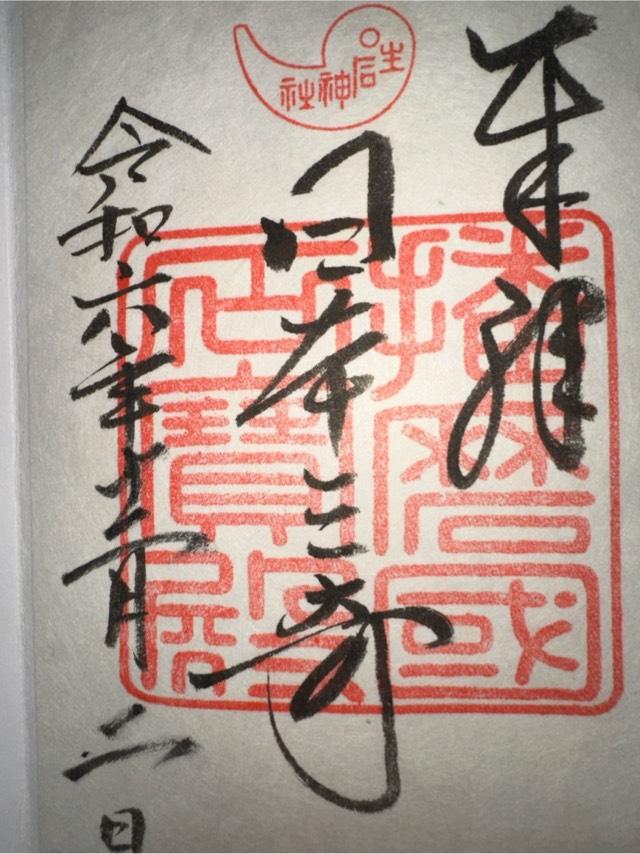 生石神社
奉拝
播磨國
日本三奇
石寶殿
令和六年十二月二日